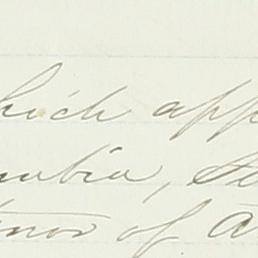 hich app
mbia, Se
nor of A